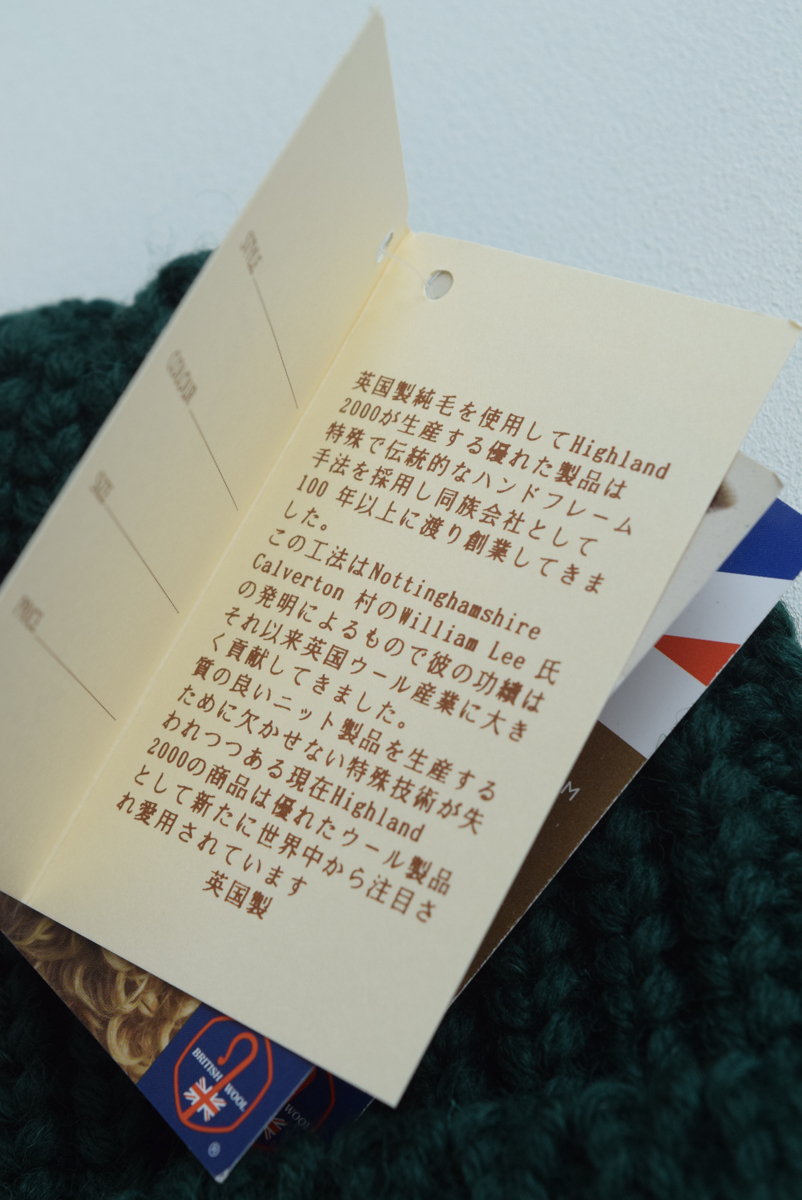 STYLE
COLOUR
SIZE
PRICE
英国製純毛を使用してHighland
2000が生産する優れた製品は
特殊で伝統的なハンドフレーム
手法を採用し同族会社として
100 年以上に渡り創業してきま
した。
この工法はNottinghamshire
Calverton 村のWilliam Lee 氏
の発明によるもので彼の功績は
それ以来英国ウール産業に大き
く貢献してきました。
質の良いニット製品を生産する
ために欠かせない特殊技術が失
われつつある現在Highland
2000の商品は優れたウール製品
として新たに世界中から注目さ
れ愛用されています
英国製
BRITISH WOOL
®
WOOL